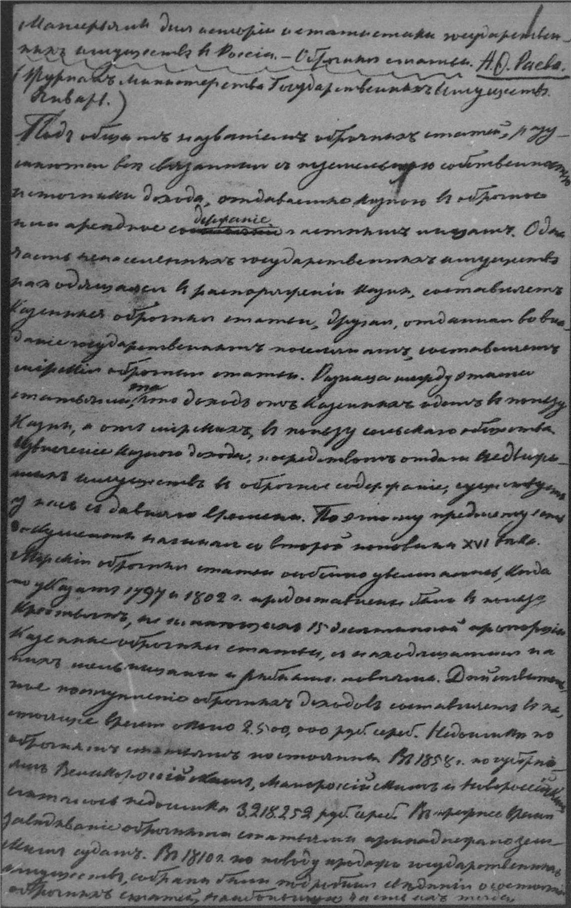 Матерьялы для исторіи и статистики государствен-
ныхъ имуществъ въ Россіи. – Оброчныя статьи. А. Ѳ. Раева.
(Журналъ Министерства Государственныхъ Имуществъ.
Январь.)
Подъ общимъ названіемъ оброчныхъ статей, разу-
мѣются всѣ связанные съ поземельною собственностію
источники дохода, отдаваемые казною въ оброчное
или арендное содержаніе частнымъ лицамъ. Одна
часть ненаселенныхъ государственныхъ имуществъ
находящаяся въ распоряженіи казны, составляетъ
казенныя оброчныя статьи, другая, отданная во вла-
дѣніе государственнымъ поселянамъ, составляетъ
мірскія оброчныя статьи. Разница между этими
статьями та, что доходъ отъ казенныхъ идетъ въ пользу
казны, а отъ мірскихъ, въ пользу сельскаго общества.
Извлеченіе казною дохода, посредствомъ отдачи недвижи-
мыхъ имуществъ въ оброчное содержаніе, существуетъ
у насъ съ давняго времени. По этому предмету есть
документы начиная со второй половины XVI вѣка.
Мірскія оброчныя статьи особенно увеличились, когда
по указамъ 1797 и 1802 г. предоставлены были въ пользу
крестьянъ, не имѣющихъ 15 десятинной пропорціи
казенныя оброчныя статьи, съ находящимися на
нихъ мельницами и рыбными ловлями. Дѣйствитель-
ное поступленіе оброчныхъ доходовъ составляетъ въ на-
стоящее время около 2.500,000 руб. сереб. Недоимки по
оброчнымъ статьямъ постоянны. Въ 1858 г. по губерні-
ямъ Великороссійскимъ, Малороссійскимъ и Новороссійскимъ
считалось недоимки 3.218.252 руб. сереб. Въ прежнее время
завѣдываніе оброчными статьями принадлежало зем-
скимъ судамъ. Въ 1810 г. по поводу продажи государственныхъ
имуществъ, собраны были подробныя свѣдѣнія о состояніи
оброчныхъ статей, наибольшую часть ихъ